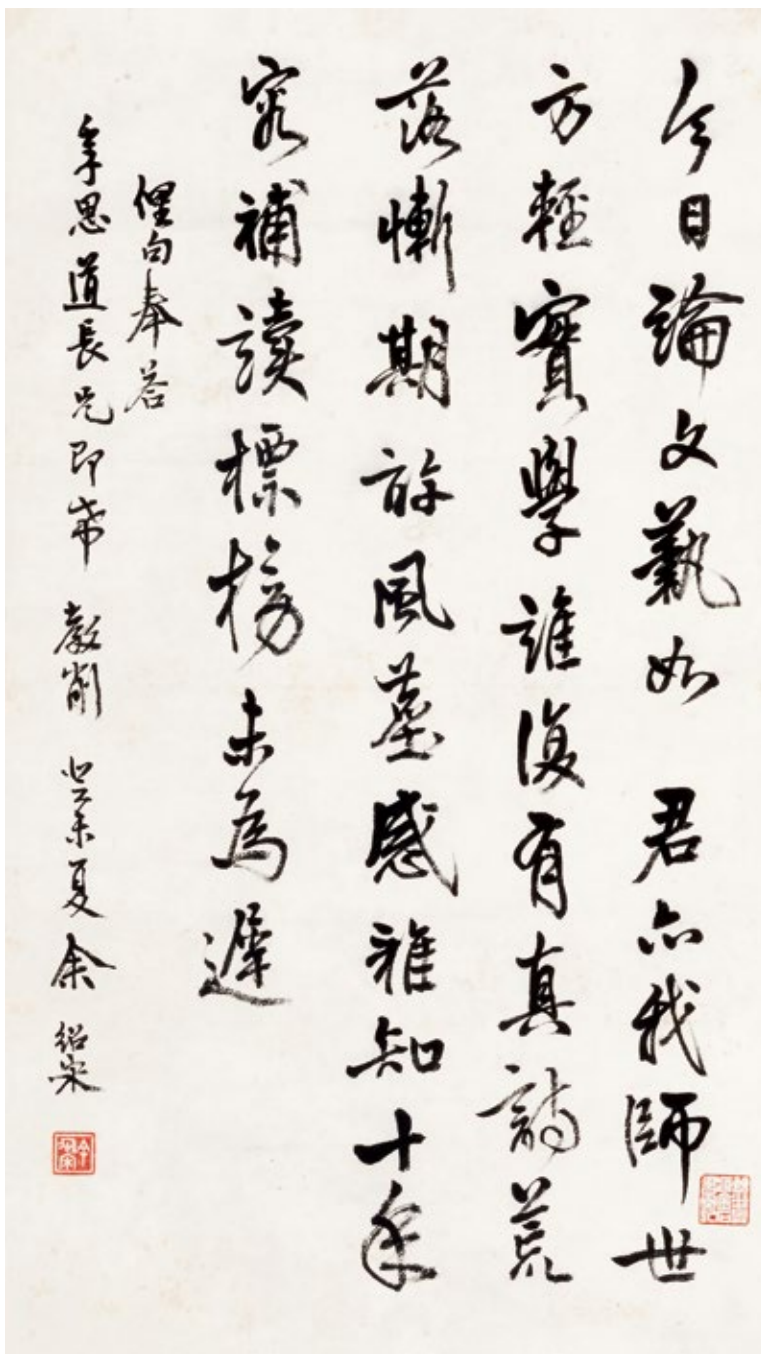 今日論文藝如 君亦我師世
方輕實學誰復有真詩荒
落慚期許風塵感雅知十年
容補讀標榜未為遲
俚句奉答
思道長兄即希 教削 癸未夏余紹宋